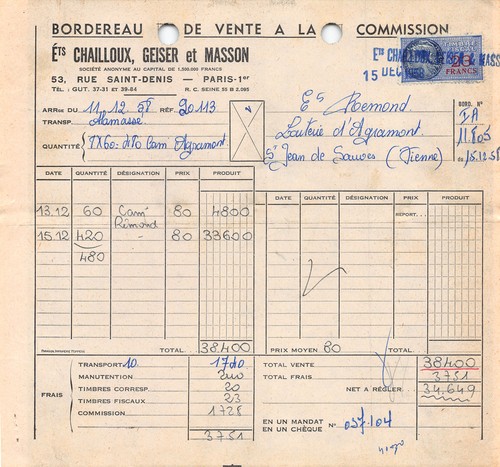 BORDEREAU DE VENTE A LA COMMISSION
Éts CHAILLOUX, GEISER et MASSON
SOCIÉTÉ ANONYME AU CAPITAL DE 1.200.000 FRANCS
53, RUE SAINT-DENIS - PARIS-1er
TÉL.: GUT. 37-31 ET 39-64
R. C. SEINE 55 B 2.095
Ets CHAILLOUX GEISER MASS
15 DEC 1958
TIMBRE FISCAL
FRANCS
ARRge DU 11.12.58 RÉF. 20113
TRANSP. Mamassé
QUANTITÉ 7X60 = 480 Cam Agramont
Es Roemond
Laiterie d'Agramont
St Jean de Sauves (Vienne)
BORD. N°
IA
11.805
du 15.12.58
DATE QUANTITÉ DÉSIGNATION PRIX PRODUIT
13.12 60 Cam Rémond 80 4800
15.12 420 - 80 33600
480
TOTAL 38.400
DATE QUANTITÉ DÉSIGNATION PRIX PRODUIT
REPORT
PRIX MOYEN 80 TOTAL
FRAIS
TRANSPORT 10. 1740
MANUTENTION 240
TIMBRES CORRESP. 20
TIMBRES FISCAUX 23
COMMISSION 1728
3751
TOTAL VENTE 38400
TOTAL FRAIS 3751
NET A RÉGLER 34.649
EN UN MANDAT
EN UN CHÈQUE N° 057.104